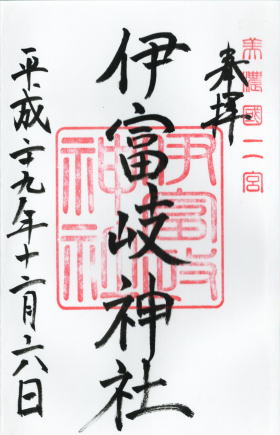 美濃國二宮
奉拝
伊富岐神社
伊富岐
神社
平成二十九年十二月六日